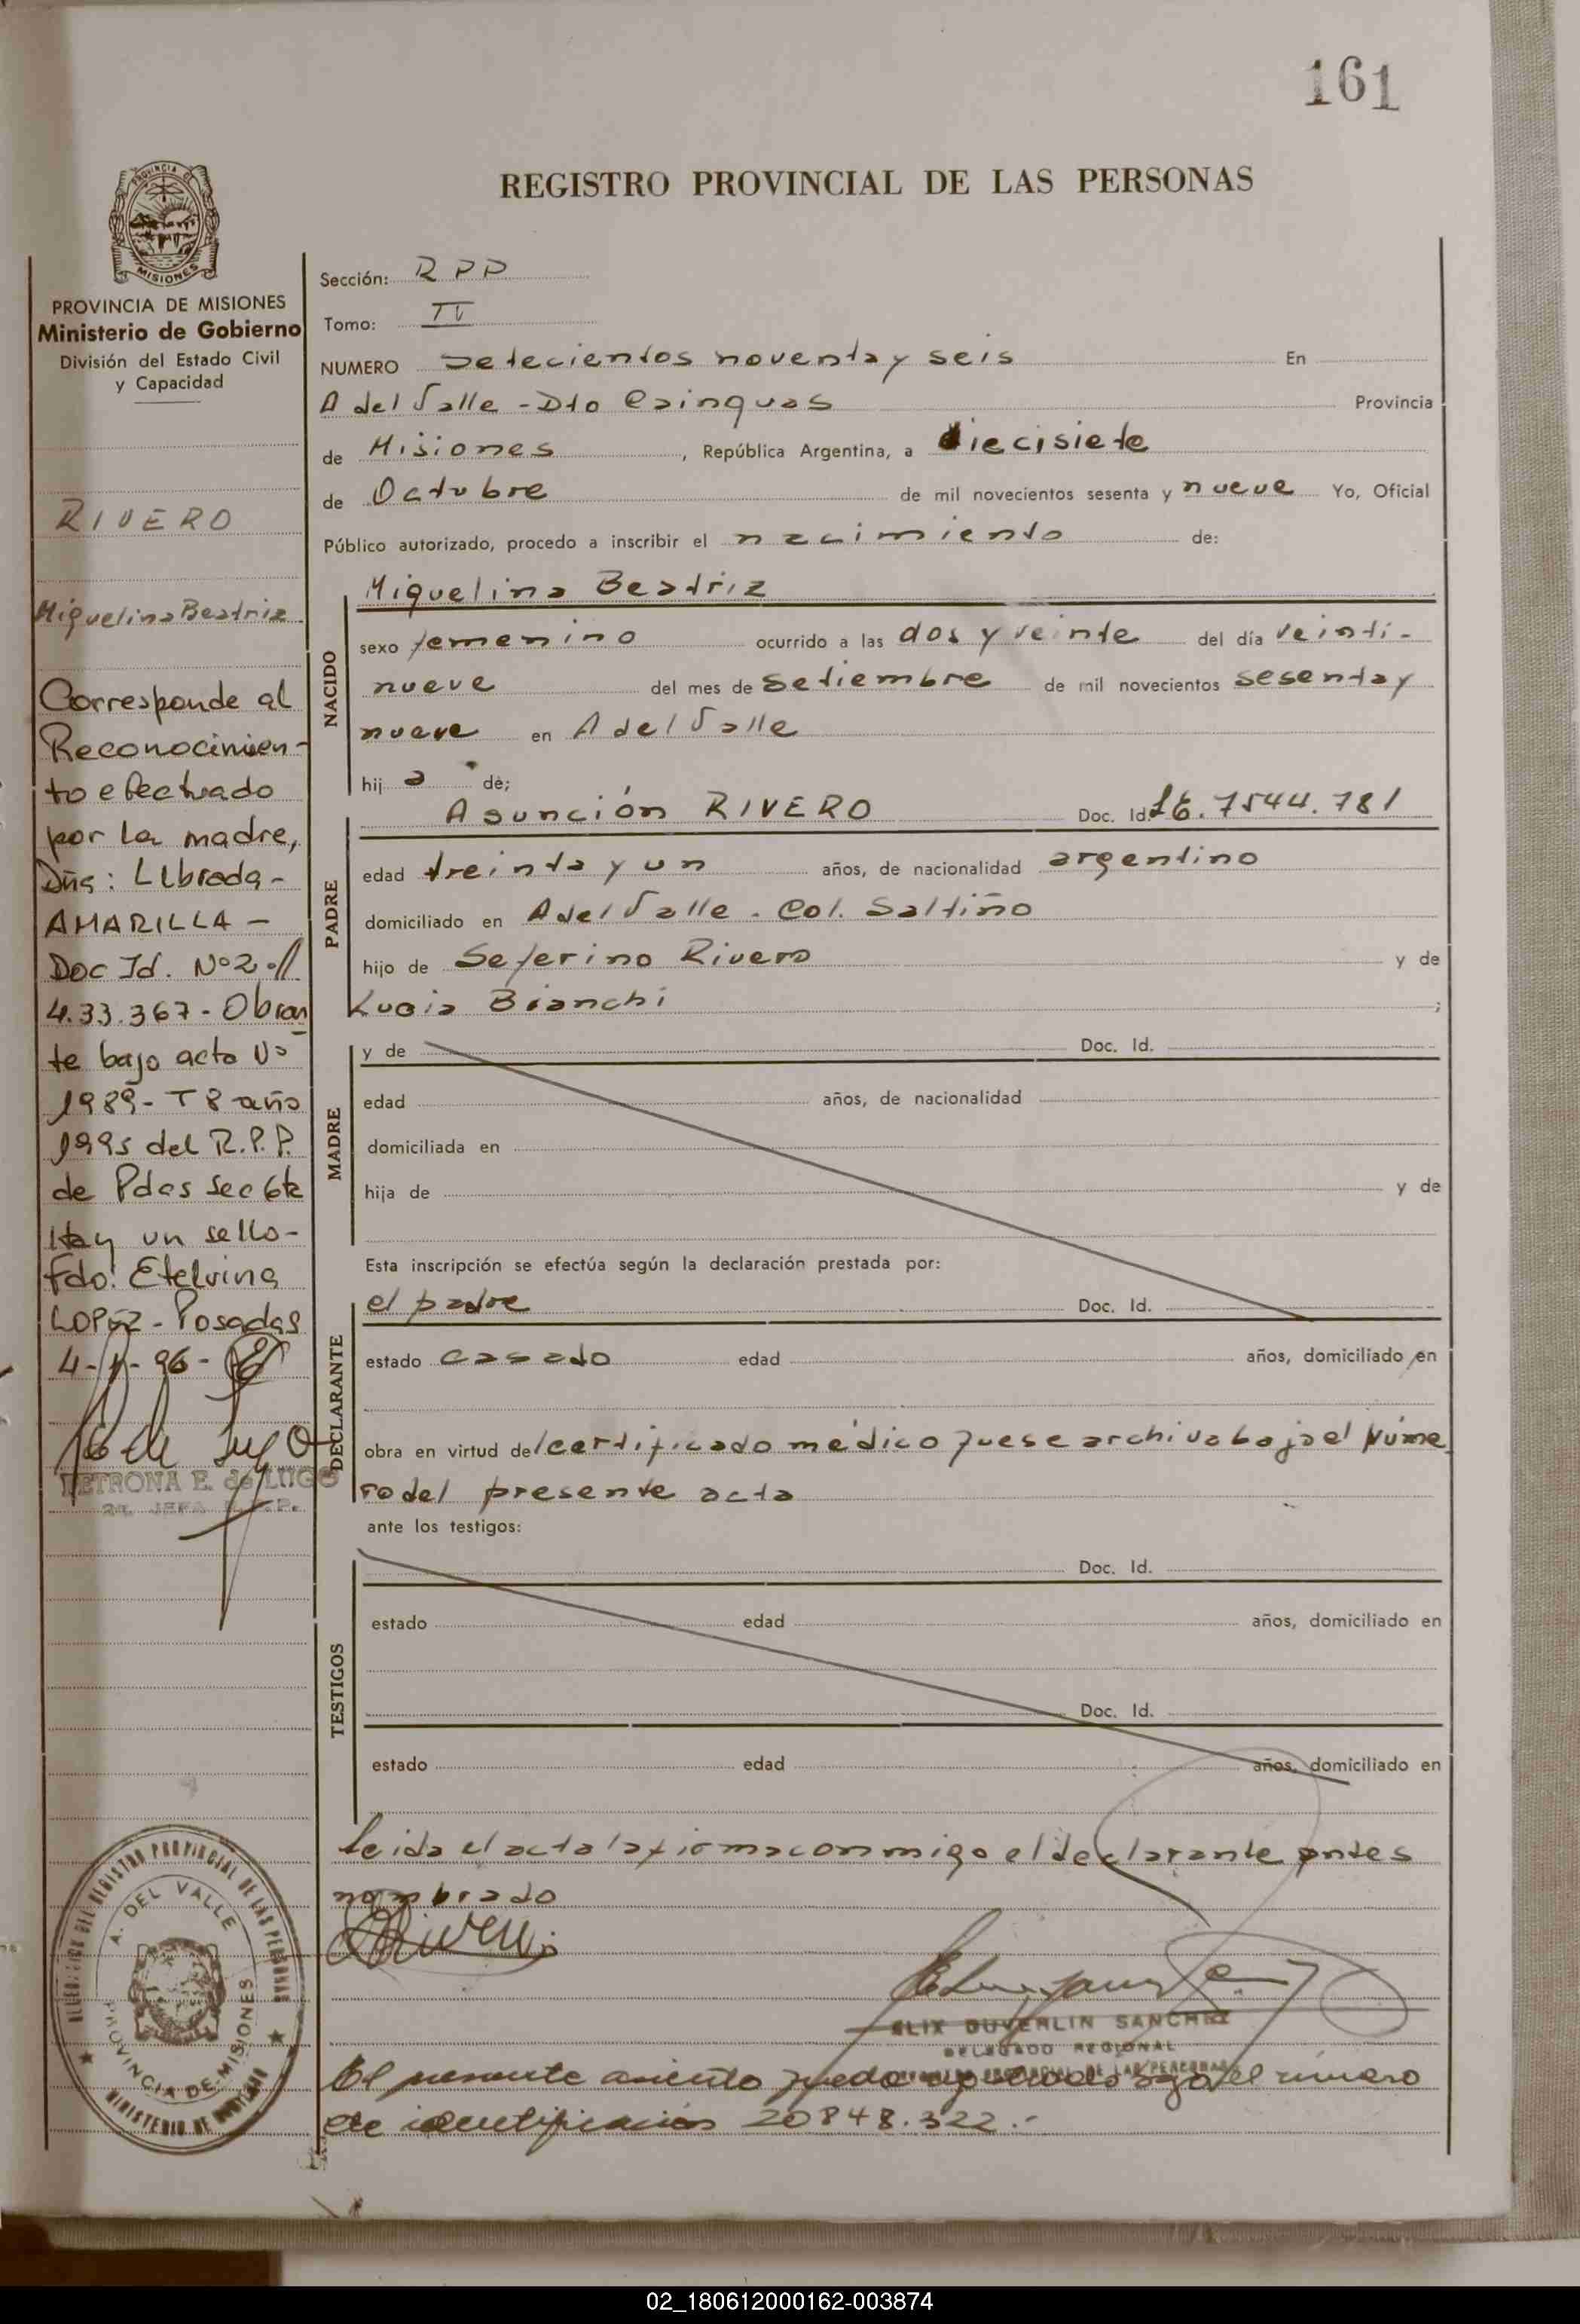 161
REGISTRO PROVINCIAL DE LAS PERSONAS
PROVINCIA DE MISIONES
PROVINCIA DE MISIONES
Ministerio de Gobierno
División del Estado Civil
y Capacidad
RIVERO
Miguelina Beatriz
Corresponde al
Reconocimien-
to efectuado
por la madre,
Dña: Librada-
AMARILLA -
Doc Id. Nº 2.//
4.33.367- Obran
te bajo acta Nº
1989- T 8 año
1995 del R.P.P.
de Pdas Sec 6ta
Hay un sello-
Fdo: Etelvina
LOPEZ - Posadas
PETRONA E. de LUGO
Sección: R P P
Tomo: IV
NUMERO Setecientos noventa y seis En
A del Valle - Dto Cainguas Provincia
de Misiones, República Argentina, a diecisiete
de Octubre de mil novecientos sesenta y nueve Yo, Oficial
Público autorizado, procedo a inscribir el nacimiento de:
NACIDO
Miguelina Beatriz
sexo femenino ocurrido a las dos y veinte del día veinti-
nueve del mes de Setiembre de mil novecientos sesenta y
nueve en A del Valle
hij a de;
PADRE
Asunción RIVERO Doc. Id. LE. 7544.781
edad treinta y un años, de nacionalidad argentino
domiciliado en A del Valle - Col. Saltiño
hijo de Seferino Rivero y de
Lucia Bianchi ;
MADRE
y de Doc. Id.
edad años, de nacionalidad
domiciliada en
hija de y de
Esta inscripción se efectúa según la declaración prestada por:
DECLARANTE
el padre Doc. Id.
estado casado edad años, domiciliado en
obra en virtud del certificado médico que se archiva bajo el núme
ro del presente acta
ante los testigos:
TESTIGOS
Doc. Id.
estado edad años, domiciliado en
Doc. Id.
estado edad años, domiciliado en
leida el acta la firma conmigo el declarante antes
nombrado
ELIX DUVERLIN SANCHEZ
DELEGADO REGIONAL
REGISTRO PROVINCIAL DE LAS PERSONAS
El presente asiento queda bajo el número
de identificación 20848.322.-
DEL REGISTRO PROVINCIAL DE LAS PERSONAS
A. DEL VALLE
PROVINCIA DE MISIONES
MINISTERIO DE GOBIERNO
02_180612000162-003874